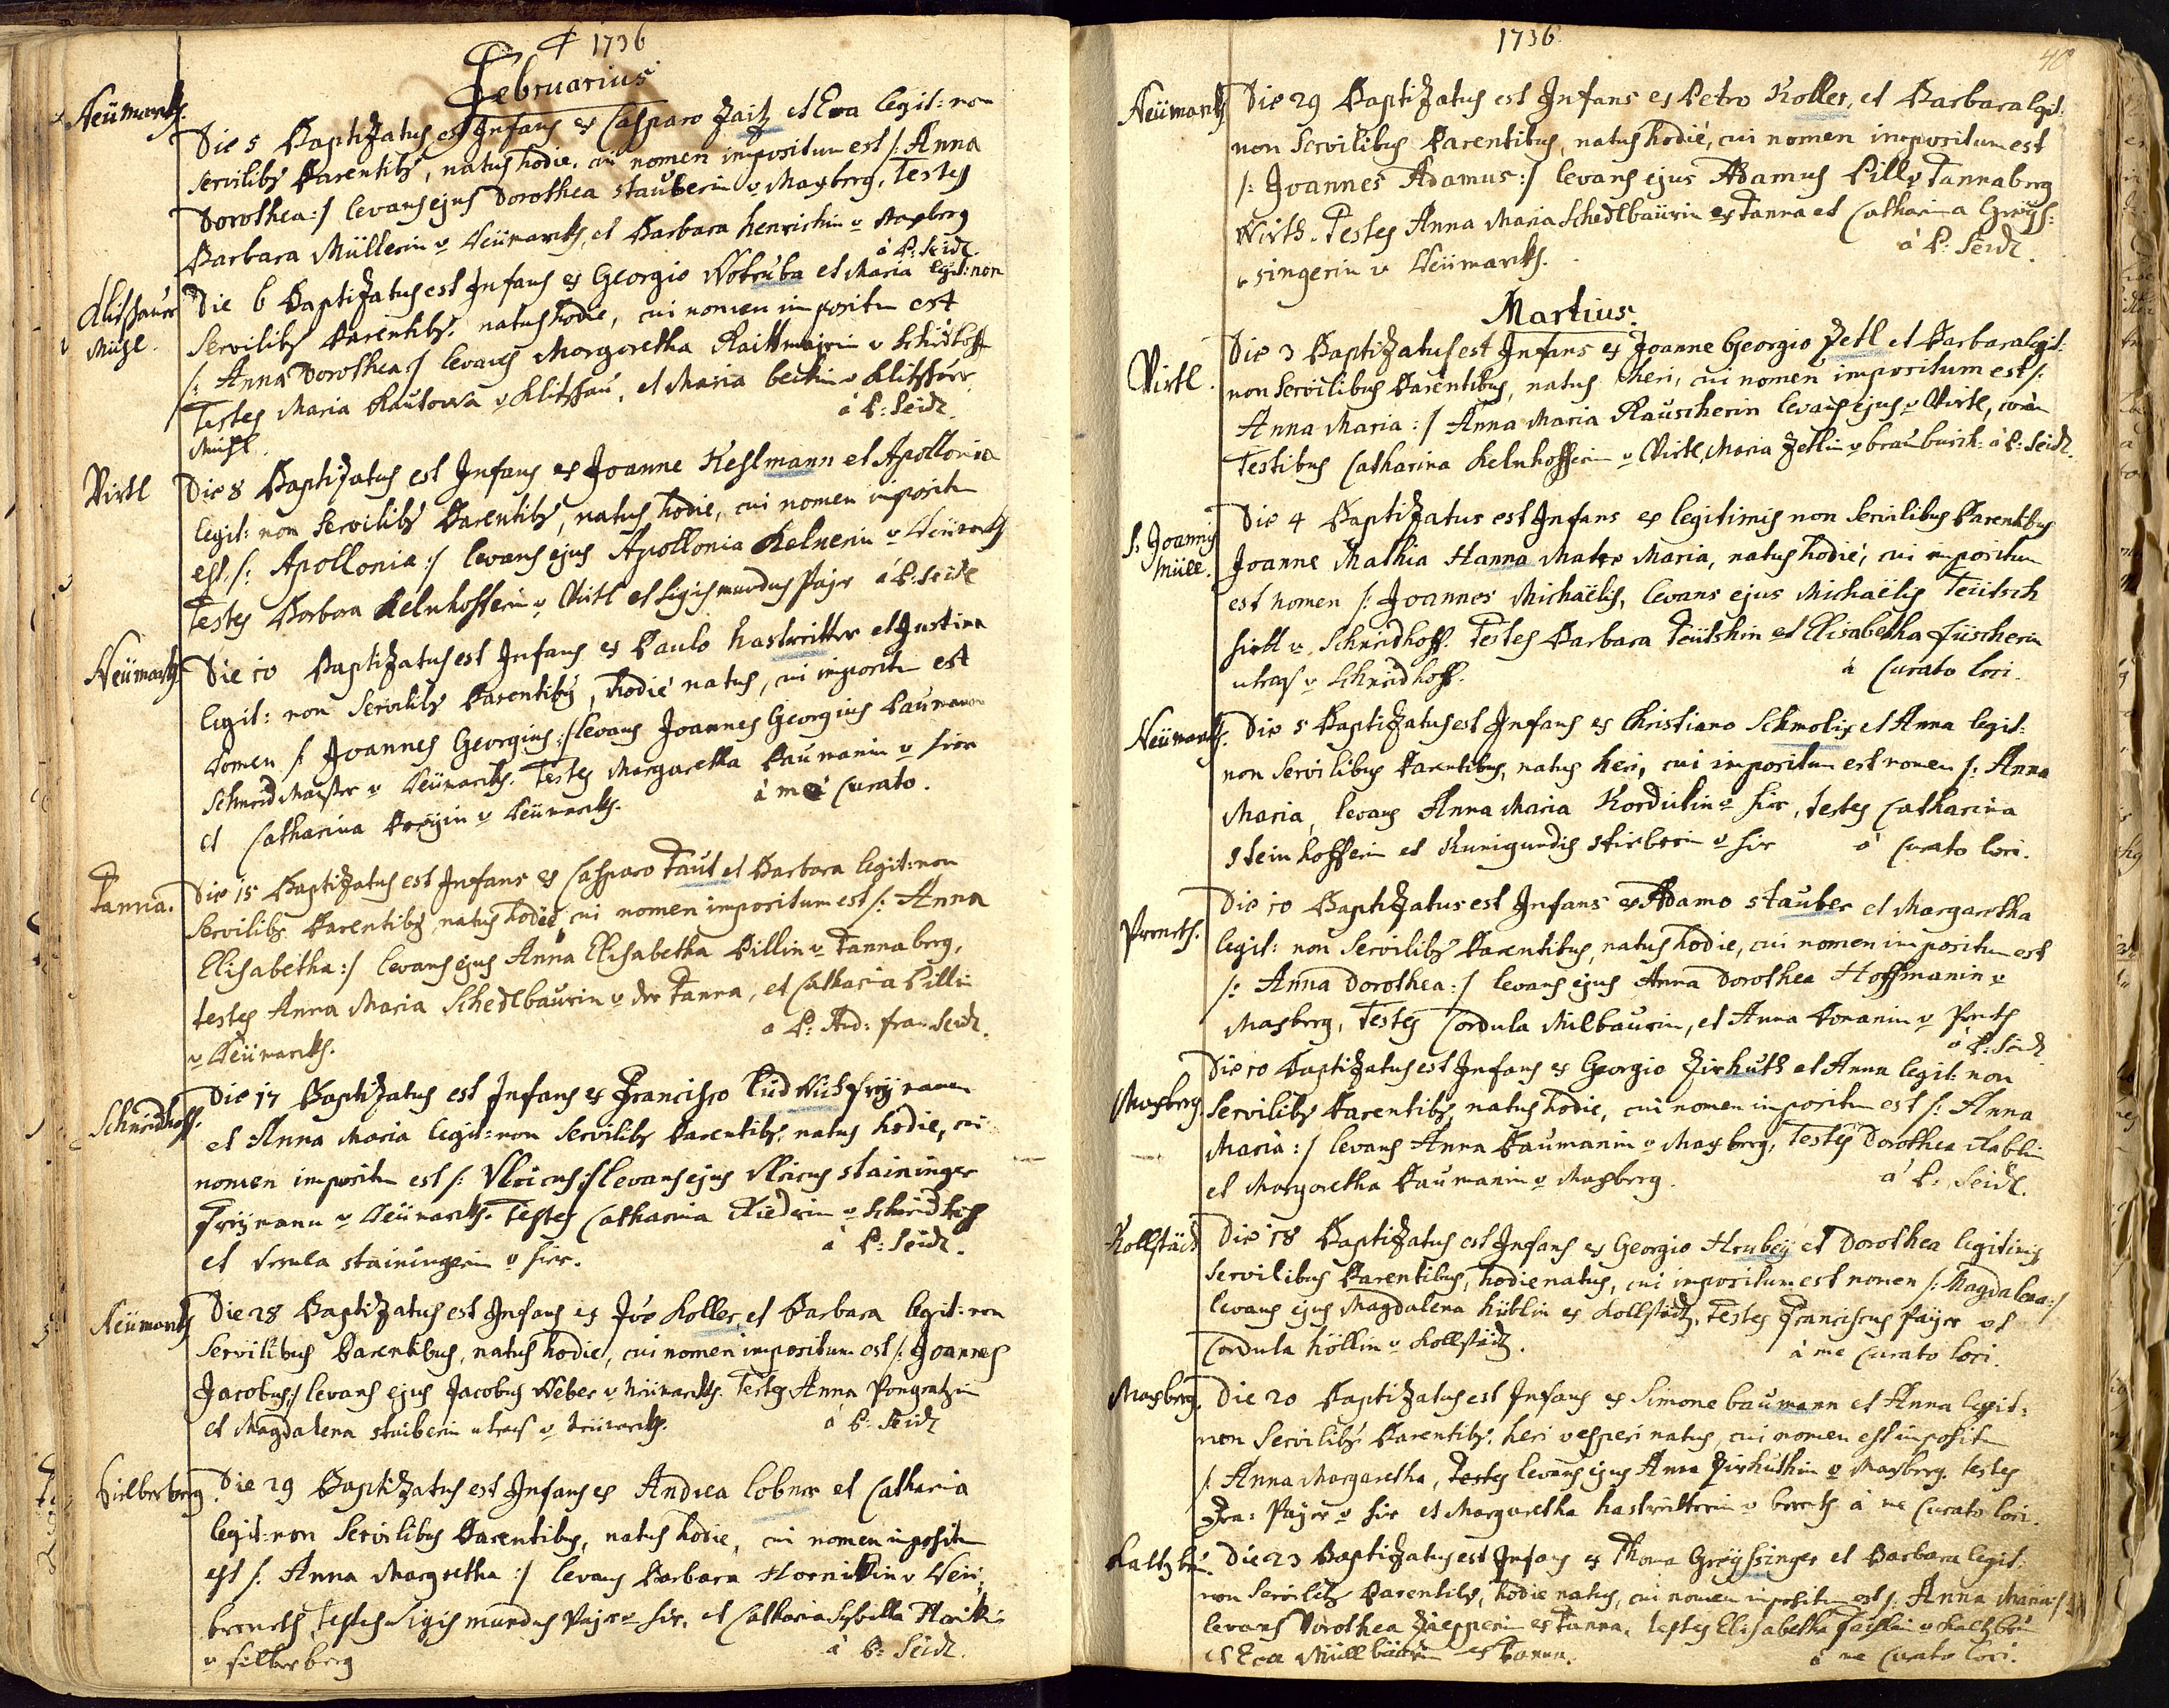 1736
Februarius
Neümarkh.
Die 5 Baptizatus est Infans ex Casparo Zaitz et Eva legit: non
servilibȝ Parentibȝ, natus hodie, cui nomen impositum est /: Anna
Dorothea :/ levans ejus Dorothea stauberin v Maxberg, Testes
Barbara Müllerin v Neümarckh, et Barbara henrichin v Maxberg
à P: Seidl.
Klitschauer
Mühl.
Die 6 Baptizatus est Infans ex Georgio Wotruba et Maria legit: non
Servilibȝ Parentibȝ, natus hodie, cui nomen impositum est
/: Anna Dorothea :/ levans Margaretha Raittmajrin v Schneidhoff
Testes Maria Rautowa v Klitschau, et Maria beckin v Klitschauer
Mühl.
à P: Seidl.
Virtl
Die 8 Baptizatus est Infans ex Joanne Keslmann et Apollonia
legit: non Servilibȝ Parentibȝ, natus hodie, cui nomen impositum
est /: Apollonia :/ levans ejus Apollonia Kelnerin v Neümarckh
Testes Barbara Kelnhofferin v Virtl et Sigismundus Pajer à P: Seidl
Neümarkh.
Die 10 Baptizatus est Infans ex Paulo hastreitter et Justina
legit: non Servilibȝ Parentibȝ, hodie natus, cui impositum est
nomen /: Joannes Georgius :/ levans Joannes Georgius Baumann
Schneid Maister v Neümarckh. Testes Margaretha Baumanin v hier
et Catharina v Neümarckh.
à me Curato.
Tanna.
Die 15 Baptizatus est Infans ex Casparo Taut et Barbara legit: non
Servilibȝ Parentibȝ natus hodie, cui nomen impositum est /: Anna
Elisabetha :/ levans ejus Anna Elisabetha Pillin v Tannaberg,
testes Anna Maria Schedlbaurin v der Tanna, et Catharia Pillin
v Neümarckh.
a P: And: fran: Seidl.
Schneidhoff.
Die 17 Baptizatus est Infans ex Francisco Ludwich freÿmann
et Anna Maria legit: non Servilibȝ Parentibȝ, natus hodie, cui
nomen impositum est /: Ulricus :/ levans ejus Ulricus staininger
freÿmann v Neümarckh. Testes Catharina Riederin v Schneidhoff
et Ursula stainingerin v hier.
à P: Seidl.
Neümarkh
Die 28 Baptizatus est Infans ex Joe Koller, et Barbara legit: non
Servilibus Parentibus, natus hodie, cui nomen impositum est /: Joannes
Jacobus :/ levans ejus Jacobus Weber v Neümarckh. Testes Anna Pongratzin
et Magdalena stuiberin utraq v Neümarckh.
à P: Seidl
Silberberg
Die 29 Baptizatus est Infans ex Andrea lobner et Catharia
legit: non Servilibus Parentibus, natus hodie, cui nomen impositum
est /: Anna Margretha :/ levans Barbara Hornikin v Neü-
bernets, Testes Sigismundus Pajer v hier, et Catharia Sybilla
v Silberberg
à P: Seidl.
1736
40
Neümarkh
Die 29 Baptizatus est Infans ex Petro Koller, et Barbara legit:
non Servilibus Parentibus, natus hodie, cui nomen impositum est
/: Joannes Adamus :/ levans ejus Adamus Pill v Tannaberg
Wirth. Testes Anna Maria Schedlbaurin ex Tanna et Catharina Greÿs-
singerin v Neümarckh.
à P: Seidl.
Martius.
Virtl.
Die 3 Baptizatus est Infans ex Joanne Georgio Zetl et Barbara legit:
non Servilibus Parentibus, natus heri, cui nomen impositum est /:
Anna Maria :/ Anna Maria Rauscherin levans ejus v Virtl, coram
Testibus Catharina Kelnhofferin v Virtl, Maria Zetlin v braubusch: à P: Seidl.
S: Joannis
Müll.
Die 4 Baptizatus est Infans ex legitimis non Servilibus Parentibus
Joanne Mathia Hanna Mater Maria, natus hodie, cui impositum
est nomen /: Joannes Michaëlis, levans ejus Michaëlis Teütsch
hirtt v Schneidhoff. Testes Barbara Teütshin et Elisabetha füscherin
utraq v Schneidhoff.
à Curato loci.
Neümarkh.
Die 5 Baptizatus est Infans ex Christiano Schmolix et Anna legit:
non Servilibus Parentibus, natus heri, cui impositum est nomen /: Anna
Maria, levans Anna Maria Kordulin v hier, testes Catharina
Steinhofferin et Kunigundis stieberin v hier
à Curato loci.
Prenets.
Die 10 Baptizatus est Infans ex Adamo stauber et Margaretha
legit: non Servilibȝ Parentibus, natus hodie, cui nomen impositum est
/: Anna Dorothea :/ levans ejus Anna Dorothea Hoffmanin v
Maxberg, Testes Cordula Milbaurin, et Anna v
à P: Seidl
Maxberg.
Die 10 Baptizatus est Infans ex Georgio Zirhuth et Anna legit: non
Servilibȝ Parentibȝ, natus hodie, cui nomen impositum est /: Anna
Maria :/ levans Anna Baumanin v Maxberg, Testes Dorothea
et Margaretha Baumanin v Maxberg.
à P: Seidl.
Kollstäd
Die 18 Baptizatus est Infans ex Georgio Hrubeÿ et Dorothea legitimis
Servilibus Parentibus, hodie natus, cui impositum est nomen /: Magdalena :/
levans ejus Magdalena hüblin ex Kollstädtz, Testes Franciscus Paÿer et
Cordula höllin v Kollstädtz.
à me Curato loci.
Maxberg.
Die 20 Baptizatus est Infans ex Simone baumann et Anna legit:
non Servilibȝ Parentibȝ, heri vesperi natus, cui nomen est impositum
/: Anna Margaretha, Testes levans ejus Anna Zirhuthin v Maxberg. testes
Fra: Pajer v hier et Margaretha hastreitterin v bernets à me Curato loci.
Kaltzbrün.
Die 23 Baptizatus est Infans ex Thoma Greÿssinger et Barbara legit:
non Servilibȝ Parentibȝ, hodie natus, cui nomen impositum est /: Anna Maria :/
levans Dorothea ex Tanna, testes Elisabetha v Kaltzbrün
et Eva Müllbäurin ex Tanna.
à me Curato loci.